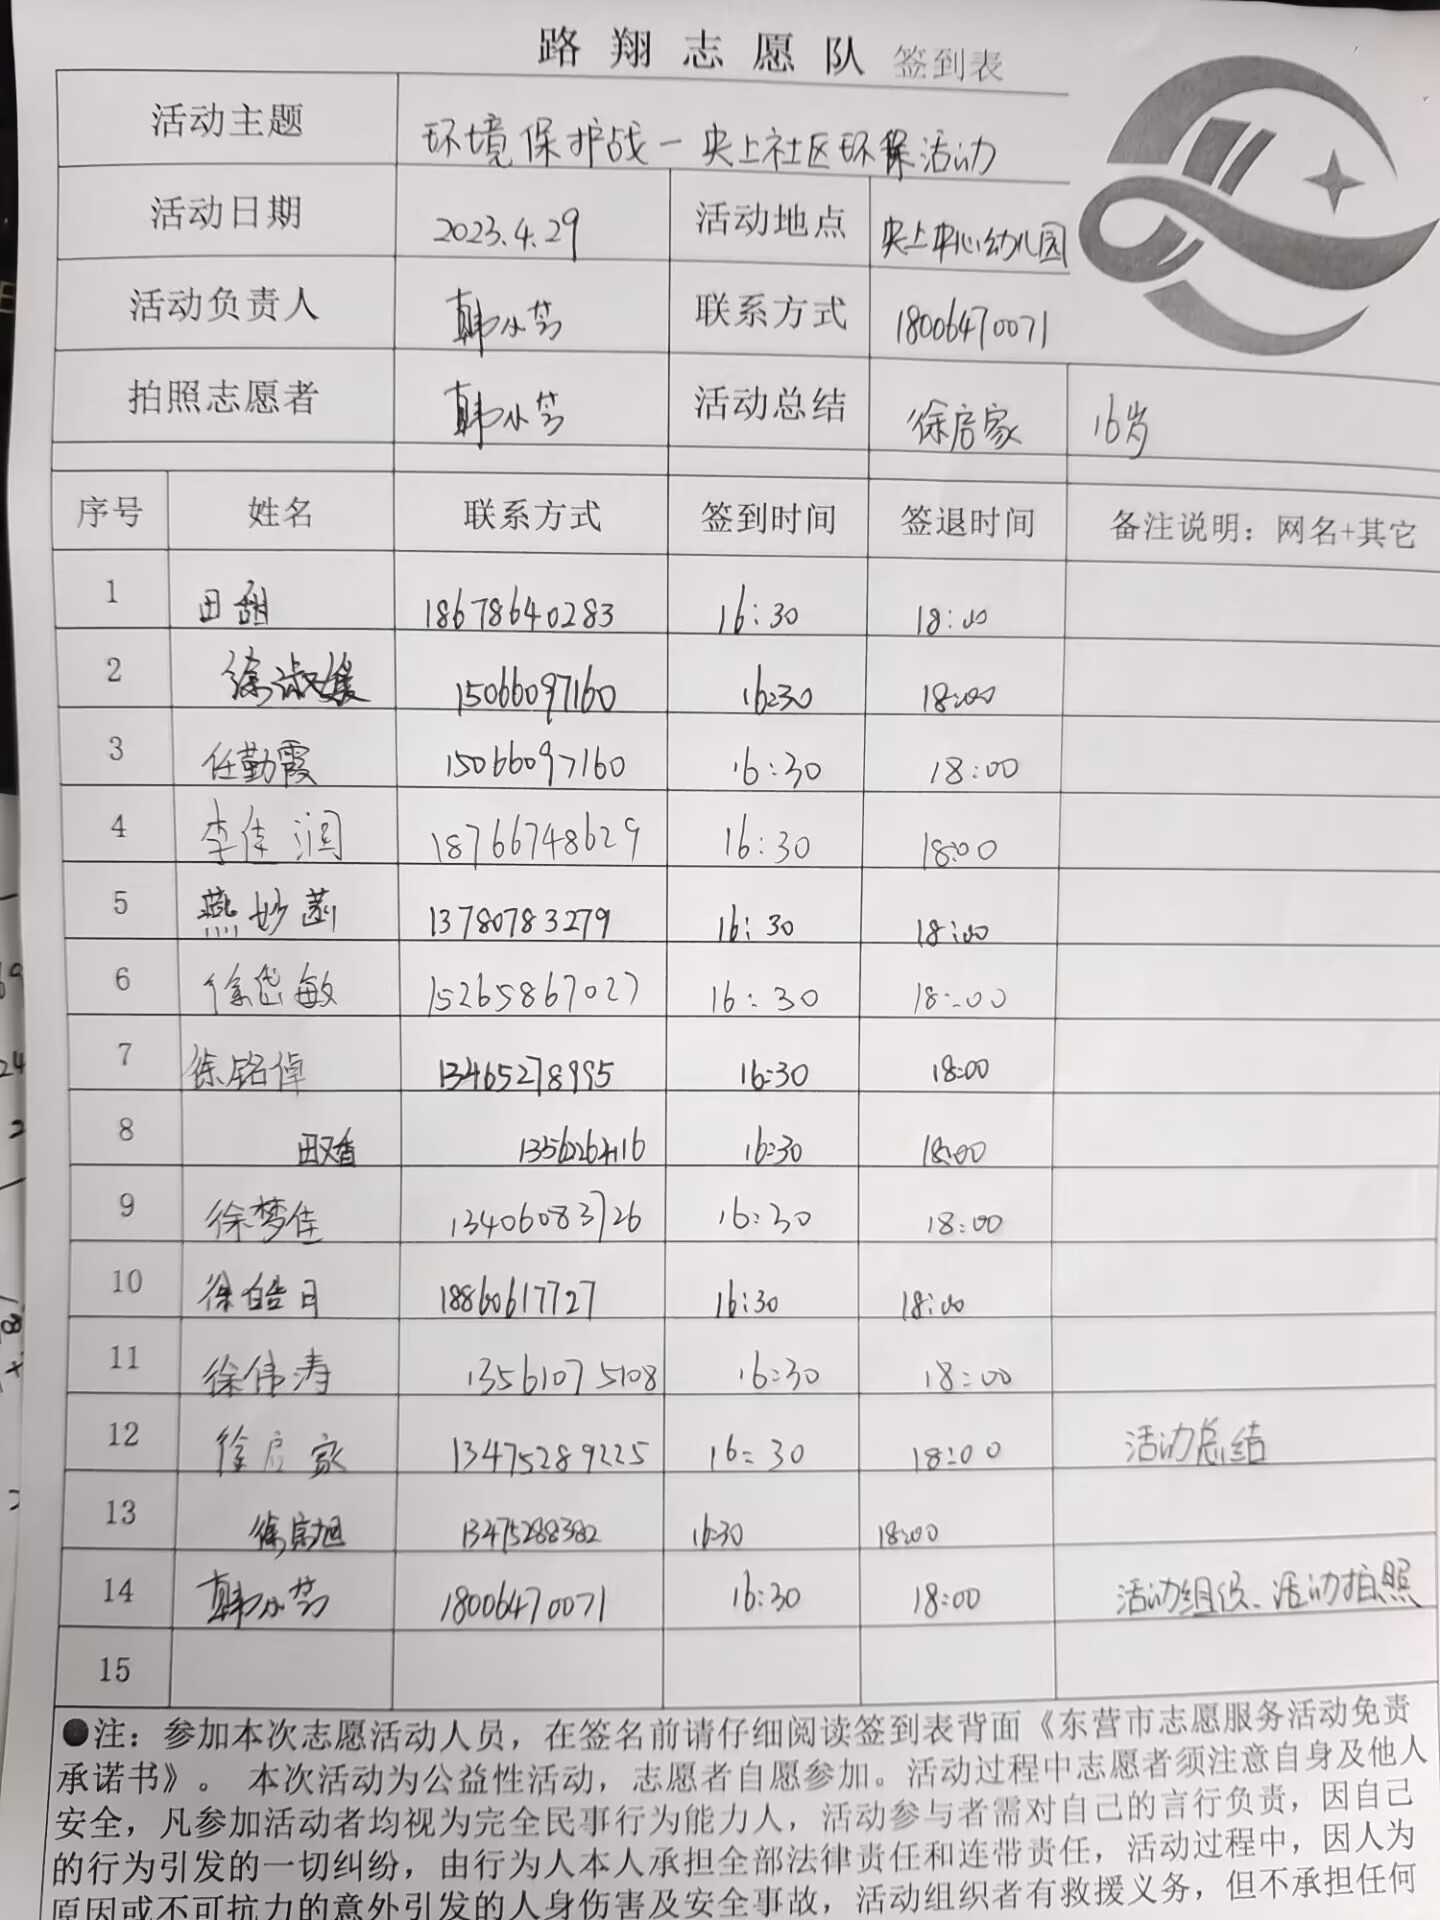 路翔志愿队 签到表
活动主题 环境保护战一央上社区环保活动
活动日期 2023.4.29 活动地点 央上中心幼儿园
活动负责人 韩小芳 联系方式 18006470071
拍照志愿者 韩小芳 活动总结 徐启家 16岁
序号 姓名 联系方式 签到时间 签退时间 备注说明：网名+其它
1 田甜 18678640283 16:30 18:00
2 徐淑媛 15066097160 16:30 18:00
3 任勤霞 15066097160 16:30 18:00
4 李佳润 18766748629 16:30 18:00
5 燕妙菡 13780783279 16:30 18:00
6 徐岱敏 15265867027 16:30 18:00
7 徐铭倬 13465278995 16:30 18:00
8 16:30 18:00
9 徐梦佳 13406083726 16:30 18:00
10 徐皓月 18860617727 16:30 18:00
11 徐伟涛 13561075108 16:30 18:00
12 徐启家 13475289225 16:30 18:00 活动总结
13 13475288382 16:30 18:00
14 韩小芳 18006470071 16:30 18:00 活动组织、活动拍照
15
●注：参加本次志愿活动人员，在签名前请仔细阅读签到表背面《东营市志愿服务活动免责
承诺书》。 本次活动为公益性活动，志愿者自愿参加。活动过程中志愿者须注意自身及他人
安全，凡参加活动者均视为完全民事行为能力人，活动参与者需对自己的言行负责，因自己
的行为引发的一切纠纷，由行为人本人承担全部法律责任和连带责任，活动过程中，因人为
原因或不可抗力的意外引发的人身伤害及安全事故，活动组织者有救援义务，但不承担任何